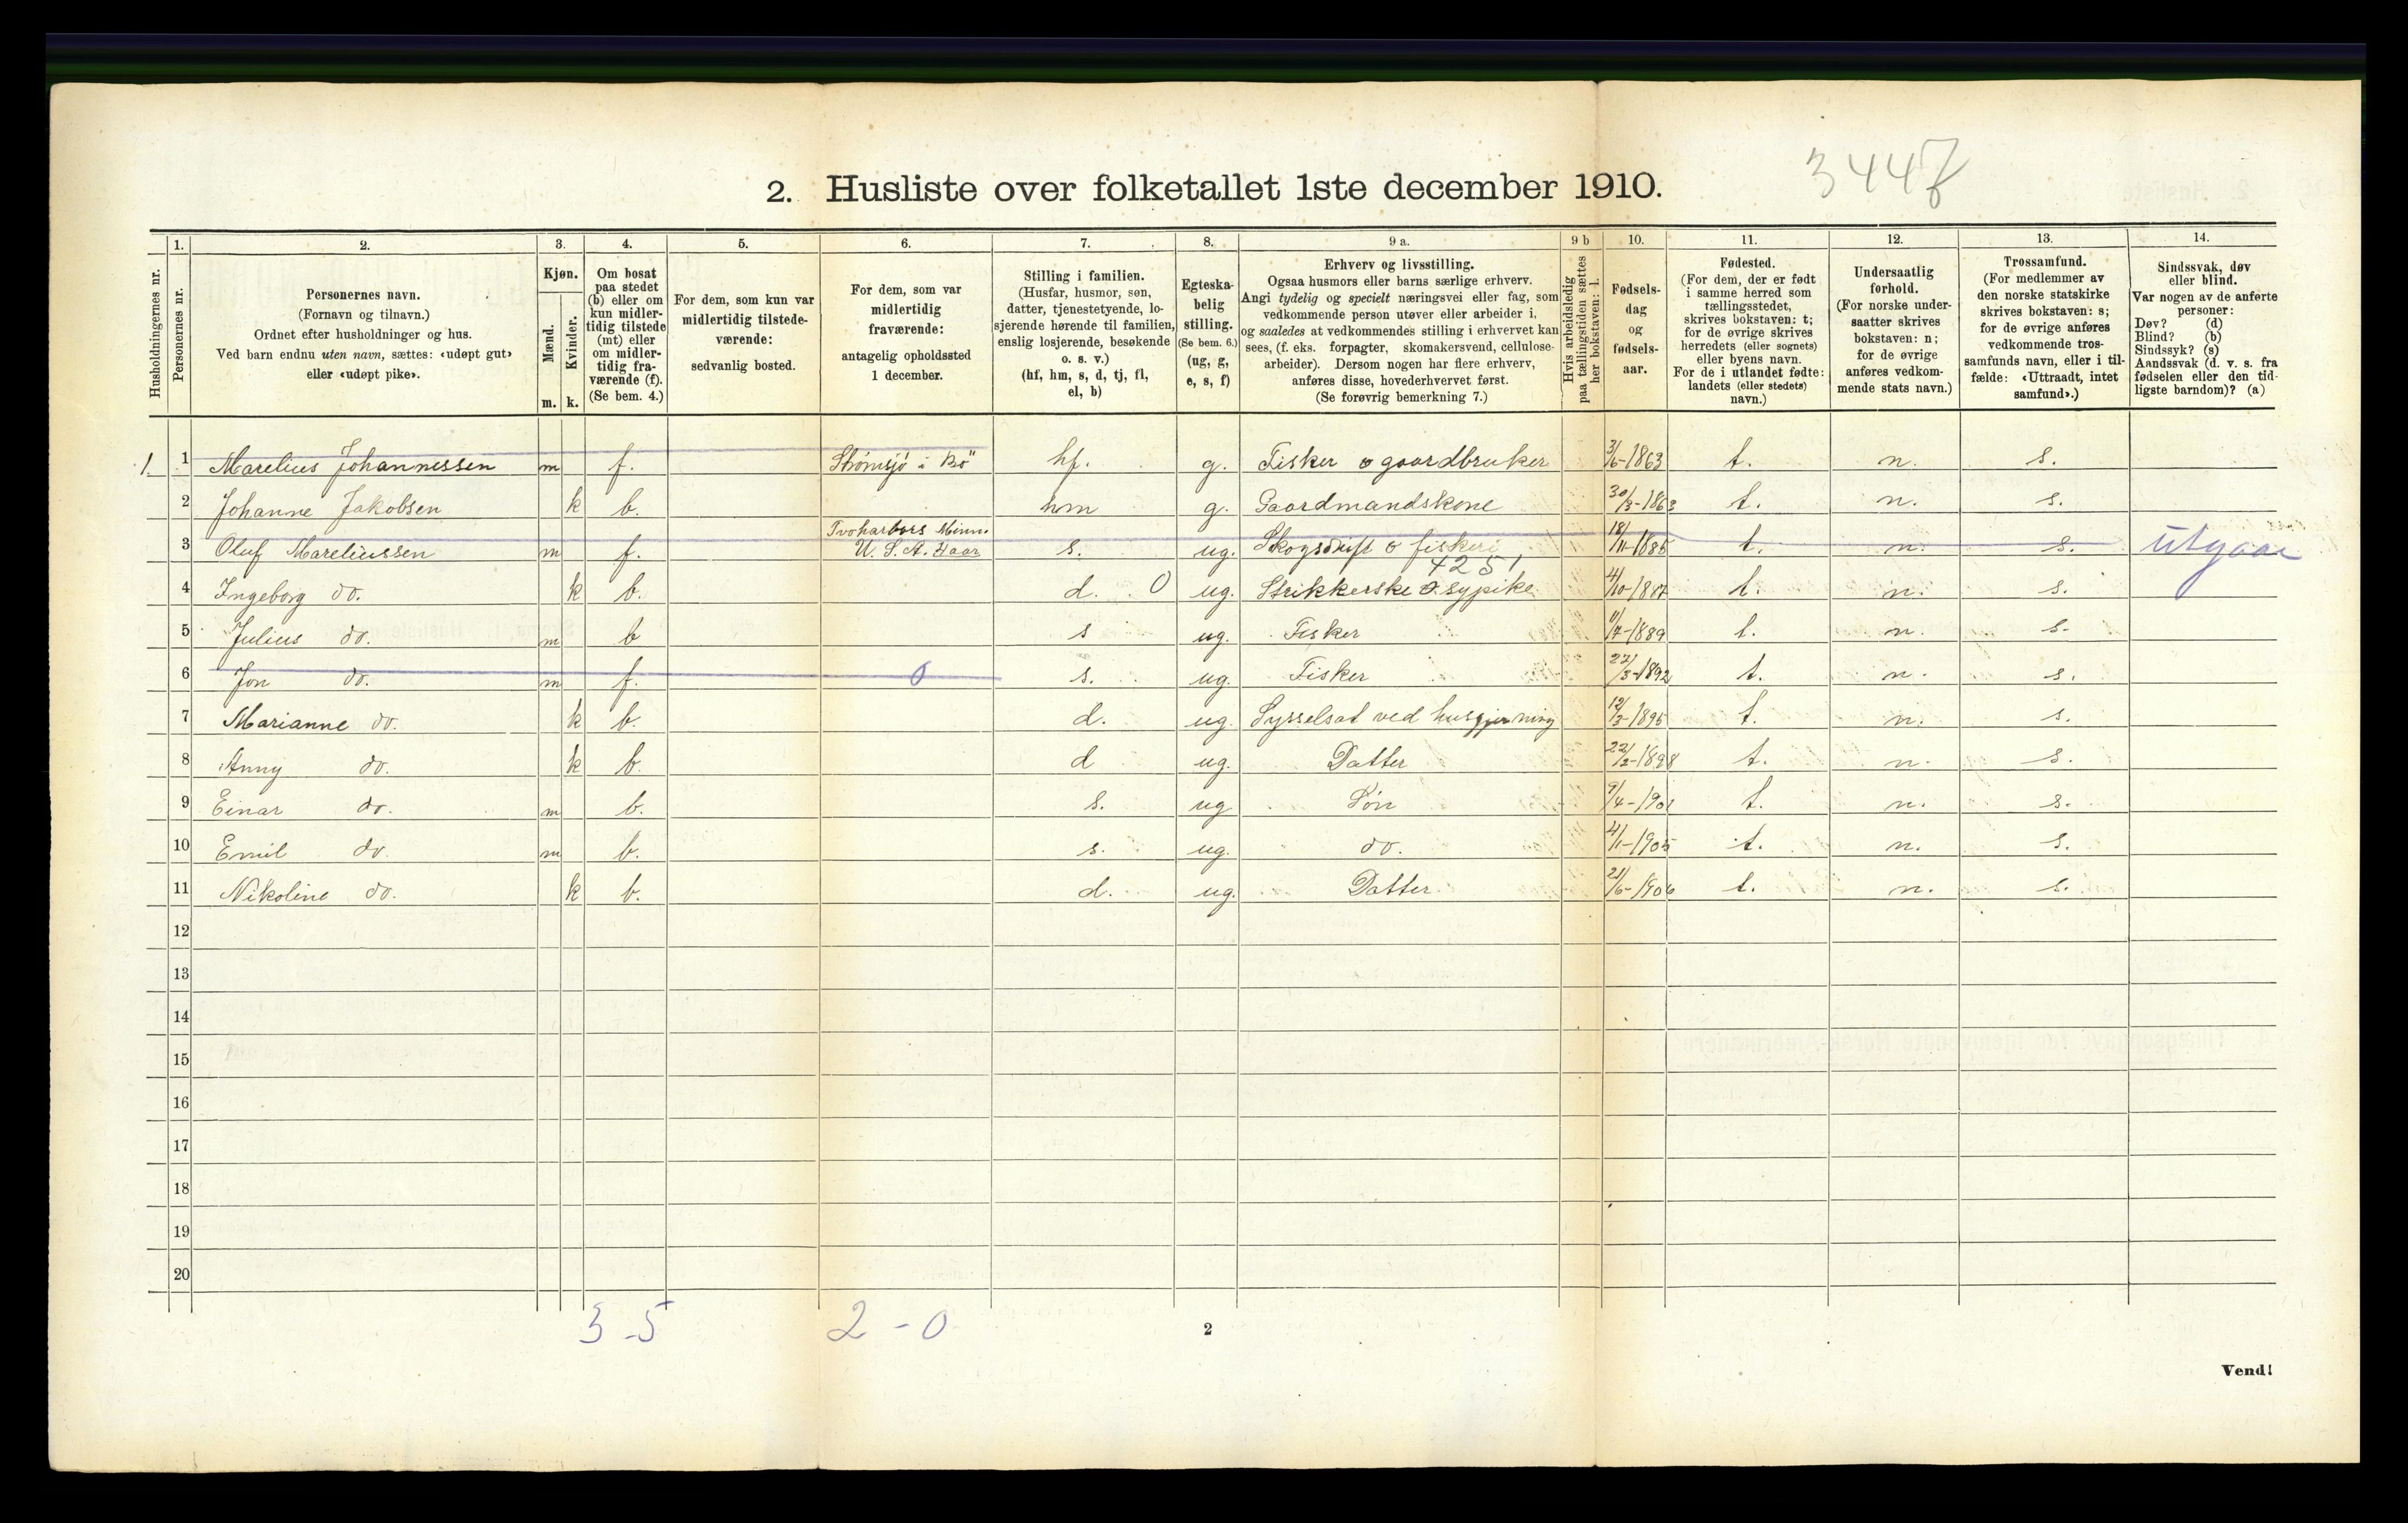 2. Husliste over folketallet 1ste december 1910.
3447
Husholdningernes nr.
1. Personernes nr.
2. Personernes navn.
(Fornavn og tilnavn.)
Ordnet efter husholdninger og hus.
Ved barn endnu uten navn, sættes: «udøpt gut»
eller «udøpt pike».
3. Kjøn.
Mænd. Kvinder.
m. k.
4. Om bosat
paa stedet
(b) eller om
kun midler-
tidig tilstede
(mt) eller
om midler-
tidig fra-
værende (f).
(Se bem. 4.)
5. For dem, som kun var
midlertidig tilstede-
værende:
sedvanlig bosted.
6. For dem, som var
midlertidig
fraværende:
antagelig opholdssted
1 december.
7. Stilling i familien.
(Husfar, husmor, søn,
datter, tjenestetyende, lo-
sjerende hørende til familien,
enslig losjerende, besøkende
o. s. v.)
(hf, hm, s, d, tj, fl,
el, b)
8. Egteska-
belig
stilling.
(Se bem. 6.)
(ug, g,
e, s, f)
9 a. Erhverv og livsstilling.
Ogsaa husmors eller barns særlige erhverv.
Angi tydelig og specielt næringsvei eller fag, som
vedkommende person utøver eller arbeider i,
og saaledes at vedkommendes stilling i erhvervet kan
sees, (f. eks. forpagter, skomakersvend, cellulose-
arbeider). Dersom nogen har flere erhverv,
anføres disse, hovederhvervet først.
(Se forøvrig bemerkning 7.)
9 b Hvis arbeidsledig
paa tællingstiden sættes
her bokstaven: l.
10. Fødsels-
dag
og
fødsels-
aar.
11. Fødested.
(For dem, der er født
i samme herred som
tællingsstedet,
skrives bokstaven: t;
for de øvrige skrives
herredets (eller sognets)
eller byens navn.
For de i utlandet fødte:
landets (eller stedets)
navn.)
12. Undersaatlig
forhold.
(For norske under-
saatter skrives
bokstaven: n;
for de øvrige
anføres vedkom-
mende stats navn.)
13. Trossamfund.
(For medlemmer av
den norske statskirke
skrives bokstaven: s;
for de øvrige anføres
vedkommende tros-
samfunds navn, eller i til-
fælde: «Uttraadt, intet
samfund».)
14. Sindssvak, døv
eller blind.
Var nogen av de anførte
personer:
Døv? (d)
Blind? (b)
Sindssyk? (s)
Aandssvak (d. v. s. fra
fødselen eller den tid-
ligste barndom)? (a)
1. 1 Marelius Johannessen m f. Strømsjö i Bö hf. g. Fisker o gaardbruker 3/6-1863 t. n. s.
2 Johanne Jakobsen k b. hm g. Gaardmandskone 30/3-1863 t. n. s.
3 Oluf Mareliussen m f. Tvoharbors Minn. U. S. A. Haar s. ug. Skogsdrift o fiskeri 18/11-1885 t. n. s. utgaar
4251
4 Ingeborg do. k b. d. 0 ug. Strikkerske o sypike 4/10-1887 t. n. s.
5 Julius do. m b s ug. Fisker 11/7-1889 t. n. s.
6 Jon do. m f. 0 s. ug. Fisker 22/3-1892 t. n. s.
7 Marianne do. k b. d. ug. Sysselsat ved husgjerning 12/3-1895 t. n. s.
8 Anny do. k b. d ug. Datter 22/2-1898 t. n. s.
9 Einar do. m b. s. ug Søn 9/4-1901 t. n. s.
10 Emil do. m b. s. ug. do. 4/1-1905 t. n. s.
11 Nikoline do. k b. d. ug. Datter 21/6-1906 t. n. s.
12
13
14
15
16
17
18
19
20
3-5 2-0
2
Vend!